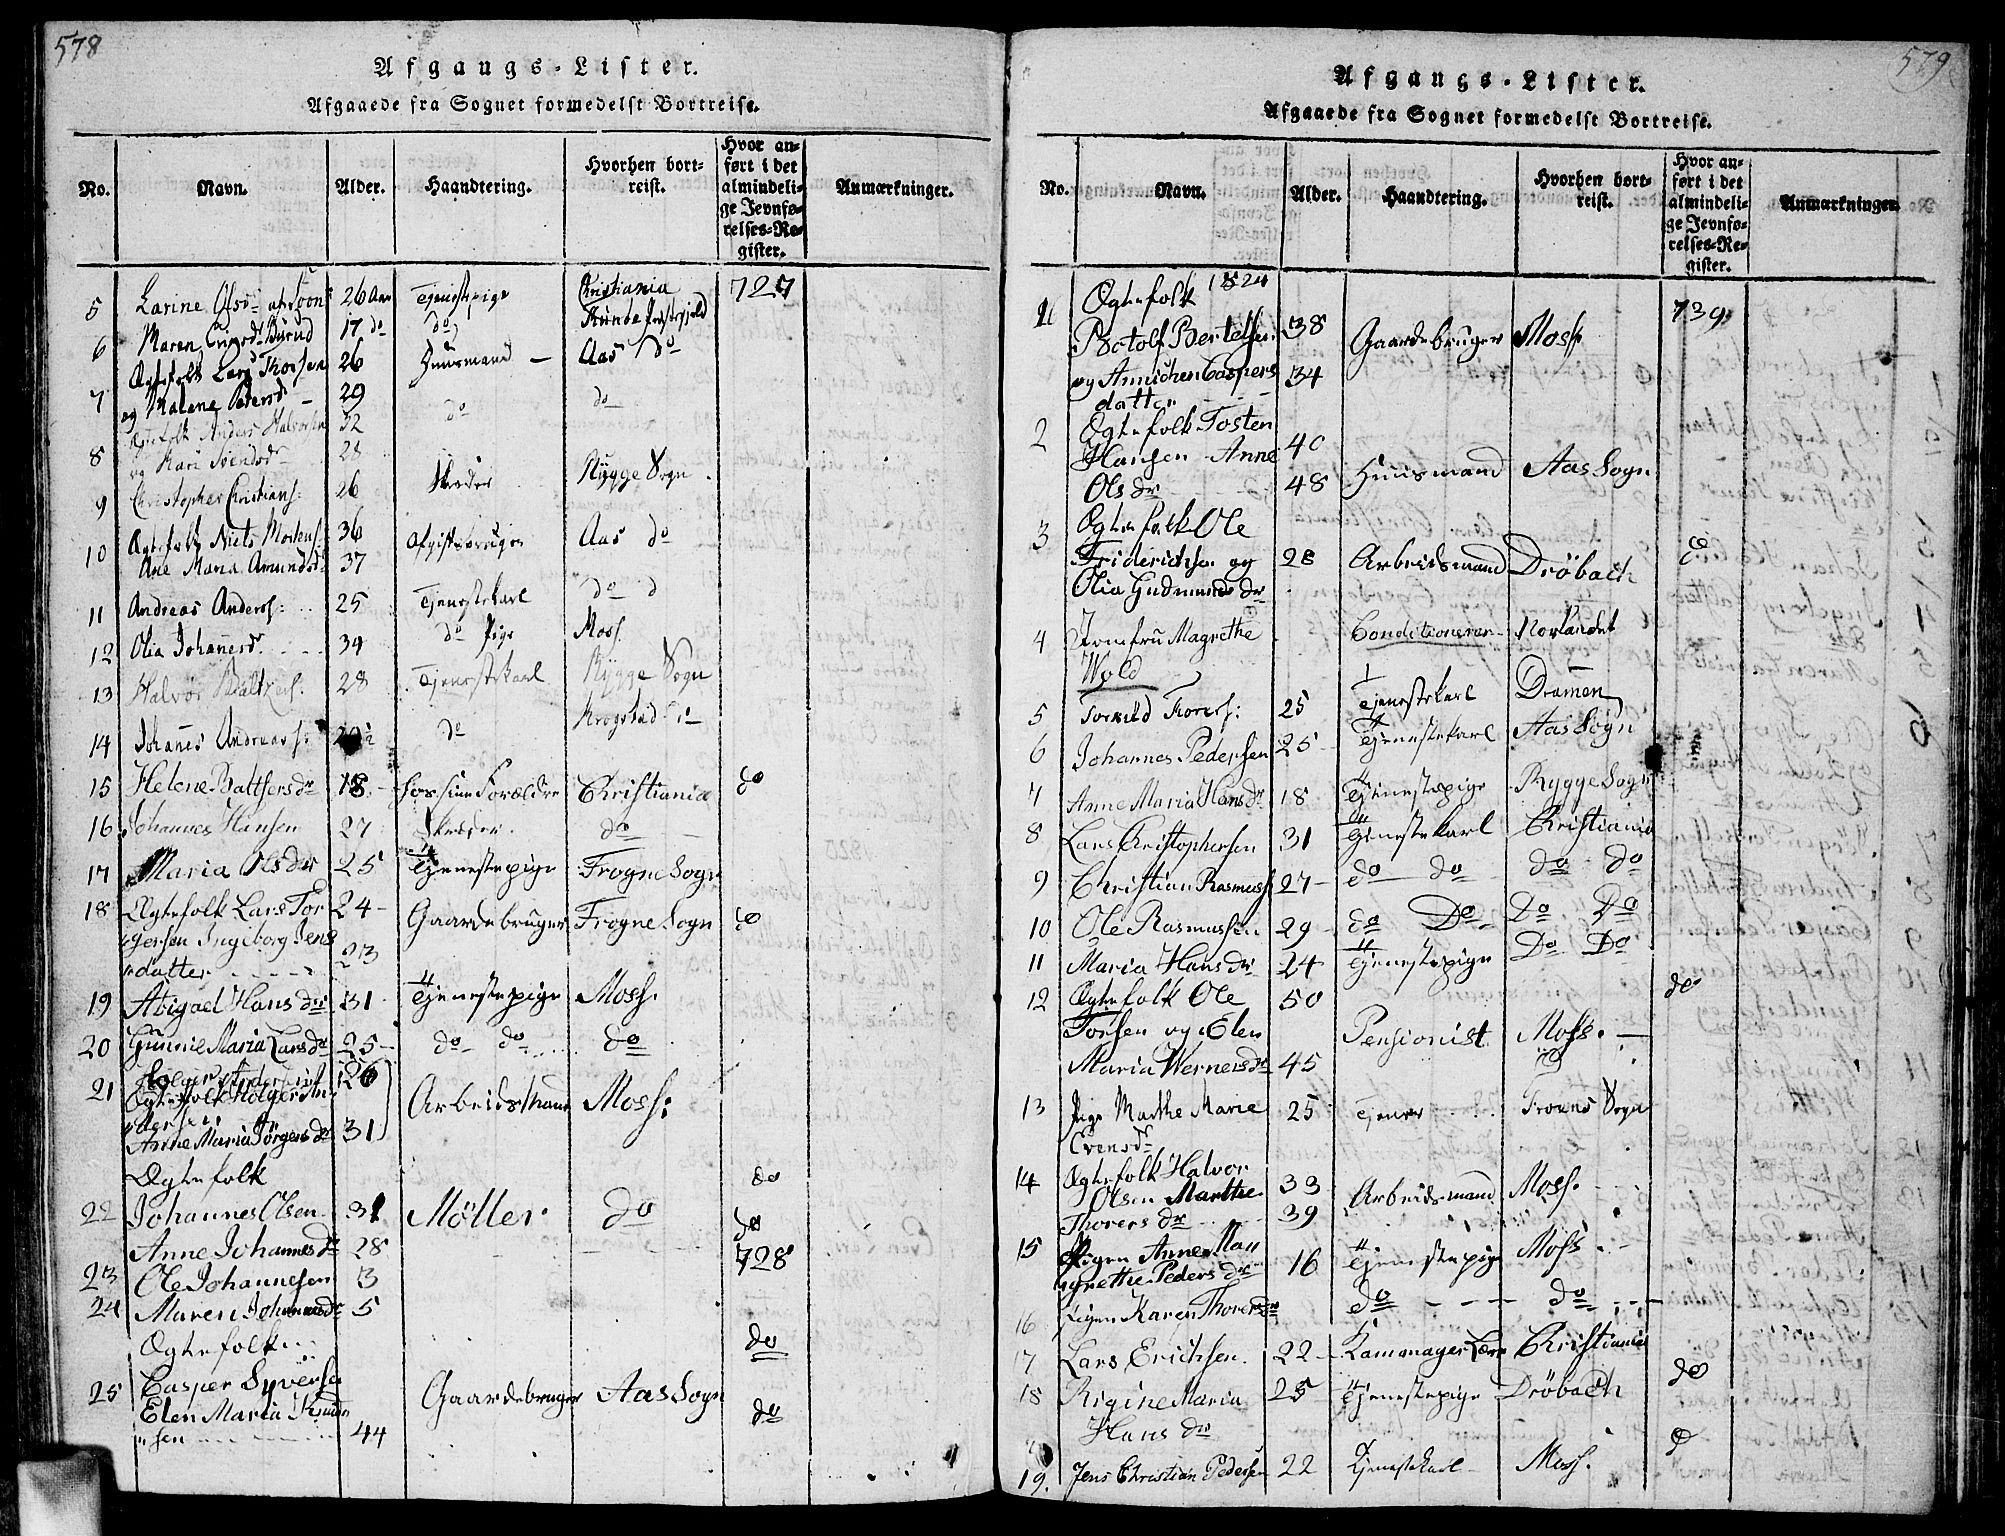 578
Afgangs-Lister.
Afgaaede fra Sognet formedelst Bortreise.
No. Navn. Alder. Haandtering. Hvorhen bortreist. Hvor anført i det almindelige Jevnførelses-Register. Anmærkninger.
5 Larine Olsd 26 Aar Tjenestepige Christiania 727
6 Maren 17 do do
7 Ægtefolk Lars Thorsen 26 Huusmand Aas do
og Malene Peders 29 do do
8 Ægtefolk Anders Halvorsen 32
og Kari Svendsd 28
9 Christopher Christians: 26 Skreder Rygge Sogn
10 Ægtefolk Niels Mortens: 36 Aas do
Ane Maria Amundsd 37
11 Andreas Anders: 25 Tjenestekarl do d
12 Olia Johannesd. 34 do Pige Moss
13 Halvor Baltzers. 28 Tjenestekarl Rygge Sogn
14 Johanes Andreass: do Krogstad do
15 Helene Baltsers dr 18 hos sine Forældre Christiania do
16 Johannes Hansen 27 Skreder. do
17 Maria Olsdtr 25 Tjenestepige Frogne Sogn
18 Ægtefolk Lars Tor 24 Gaardebruger Frogne Sogn do
gersen Ingeborg Jens 23
datter
19 Abigael Hans dr 31 Tjenestepige Moss.
20 Gunnie Maria Lars dr 25 do do do
21 Ægtefolk Holger An 26 Arbeidsmand Moss:
dersen
Anne Maria Jörgens dr 31
Ægtefolk do
22 Johannes Olsen 31 Möller do do
Anne Johannes dr 28 728
23 Ole Johannesen 3
24 Maren Johannesdr 5
Ægtefolk do
25 Casper Syverse Gaardebruger Aas Sogn do
Elen Maria Knud
sen 44
579
Afgangs-Lister.
Afgaaede fra Sognet formedelst Bortreise.
No. Navn. Alder. Haandtering. Hvorhen bortreist. Hvor anført i det almindelige Jevnførelses-Register. Anmærkninger.
1824
1 Ægtefolk 739
Botolf Bertelsen 38 Gaardebruger Moss
og Annichen Caspers 34
datter
2 Ægtefolk Tosten 40
Hansen Anne
Ols dr 48 Huusmand Aas Sogn
3 Ægtefolk Ole
Friderichsen og 28 Arbeidsmand Dröbach do
Olia Gudmunds dr
4 Jomfru Magrethe Conditionerer Norlandet
Wold
5 Torers: 25 Tjenestekarl Dramen
6 Johannes Pedersen 25 Tjenestekarl Aas Sogn
7 Anne Maria Hans dr 18 Tjenestepige Rygge Sogn
8 Lars Christophersen 31 Tjenestekarl Christiania
9 Christian Rasmuss 27 do do do do
10 Ole Rasmussen 29 do Do Do Do
11 Maria Hans dr 24 Tjenestepige Do Do
12 Ægtefolk Ole 50 do
Torsen og Elen Pensionist Moss.
Maria Werners dr 45
13 Pige Marthe Marie 25 Tjener Frouns Sogn
Evensdr
14 Ægtefolk Halvor
Olsen Marthe 33 Arbeidsmand Moss.
Thorers dr 39
15 Pigen Anne Mar
grethe Peders dr 16 Tjenestepige Moss.
16 Pigen Karen Thorersdr do do
17 Lars Erichsen. 22 Christiania
18 Rigine Maria 25 Tjenestepige Dröbach do
Hans dr
19. Jens Christian Pedersen 22 Tjenestekarl Moss. do